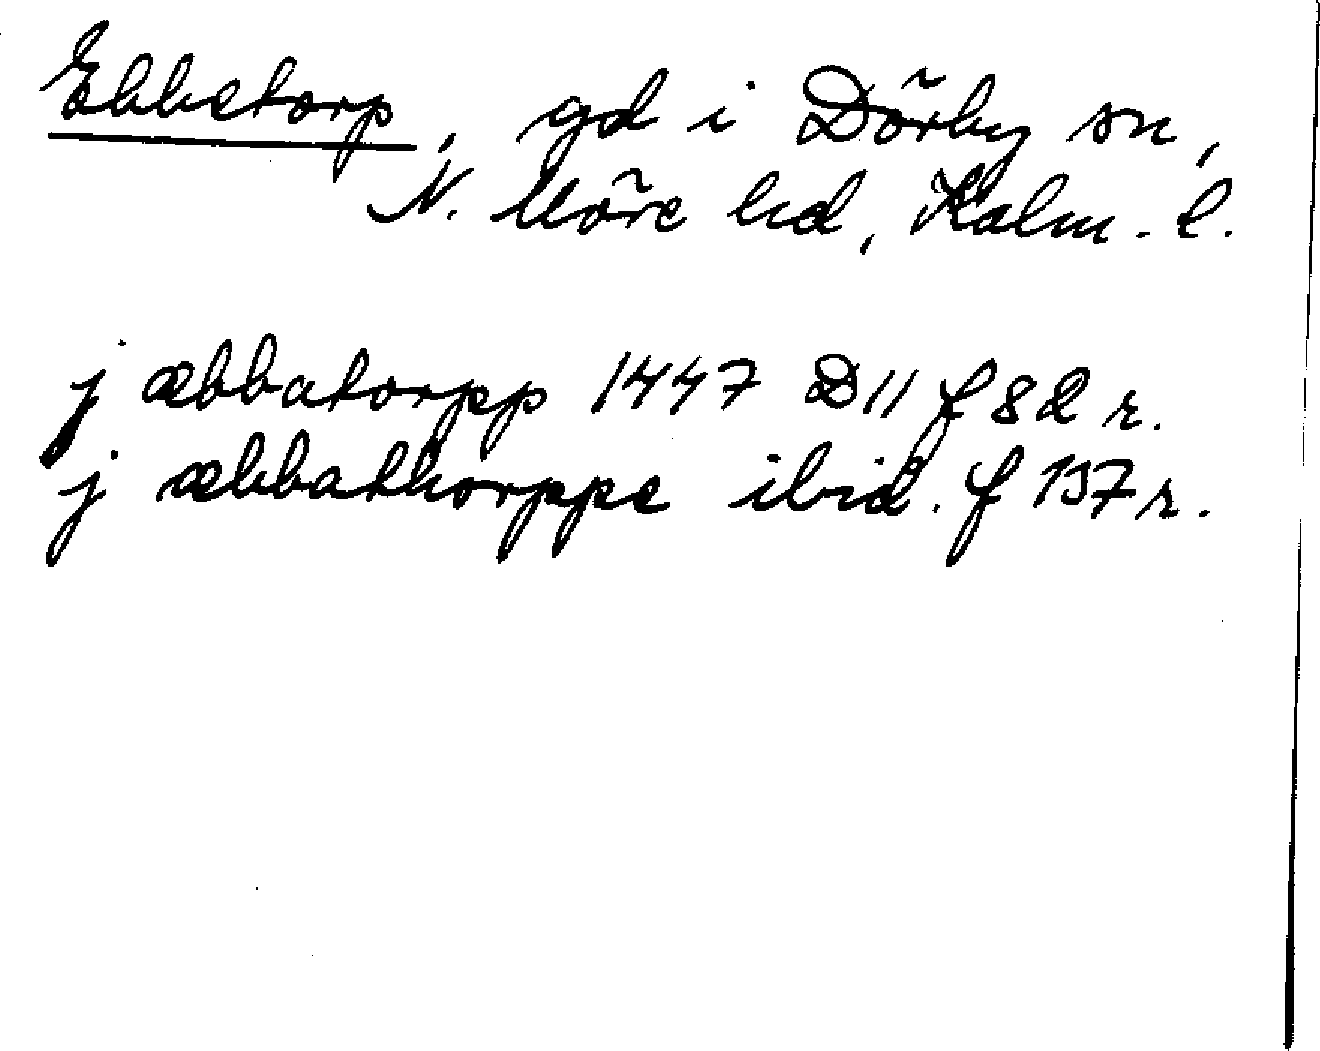 Ebbetorp, gd i Dörby sn,
N. Möre hd, Kalm. l.
j æbbatorpp 1447 D 11 f 82 r.
j æbbathorppe ibid. f 157 r.